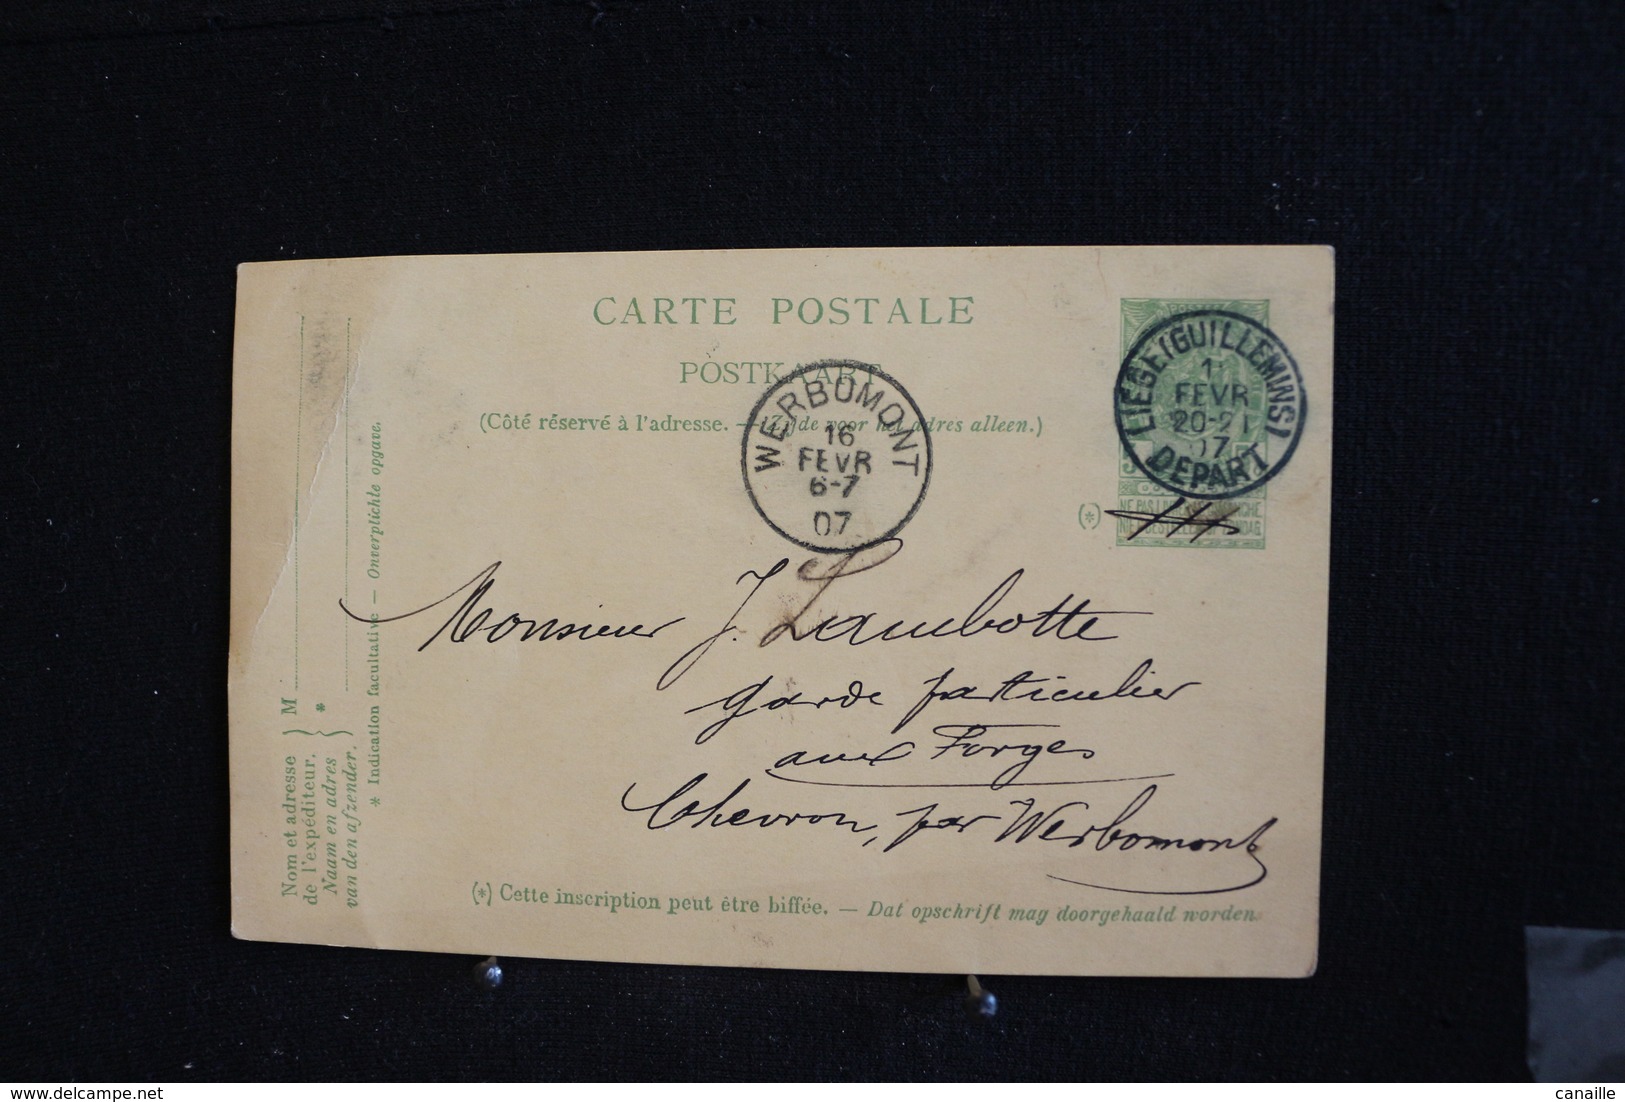 CARTE POSTALE
POSTKAART
(Côté réservé à l'adresse. — Zijde voor het adres alleen.)
WERBOMONT
16
FEVR
6-7
07
LIEGE (GUILLEMINS)
FEVR
20-21
07
DEPART
(*)
Monsieur J. Lambotte
garde particulier
aux Forges
Chevron, par Werbomont
(*) Cette inscription peut être biffée. — Dat opschrift mag doorgehaald worden.
Nom et adresse
de l'expéditeur.
Naam en adres
van den afzender.
M
*
* Indication facultative — Onverplichte opgave.
canaille